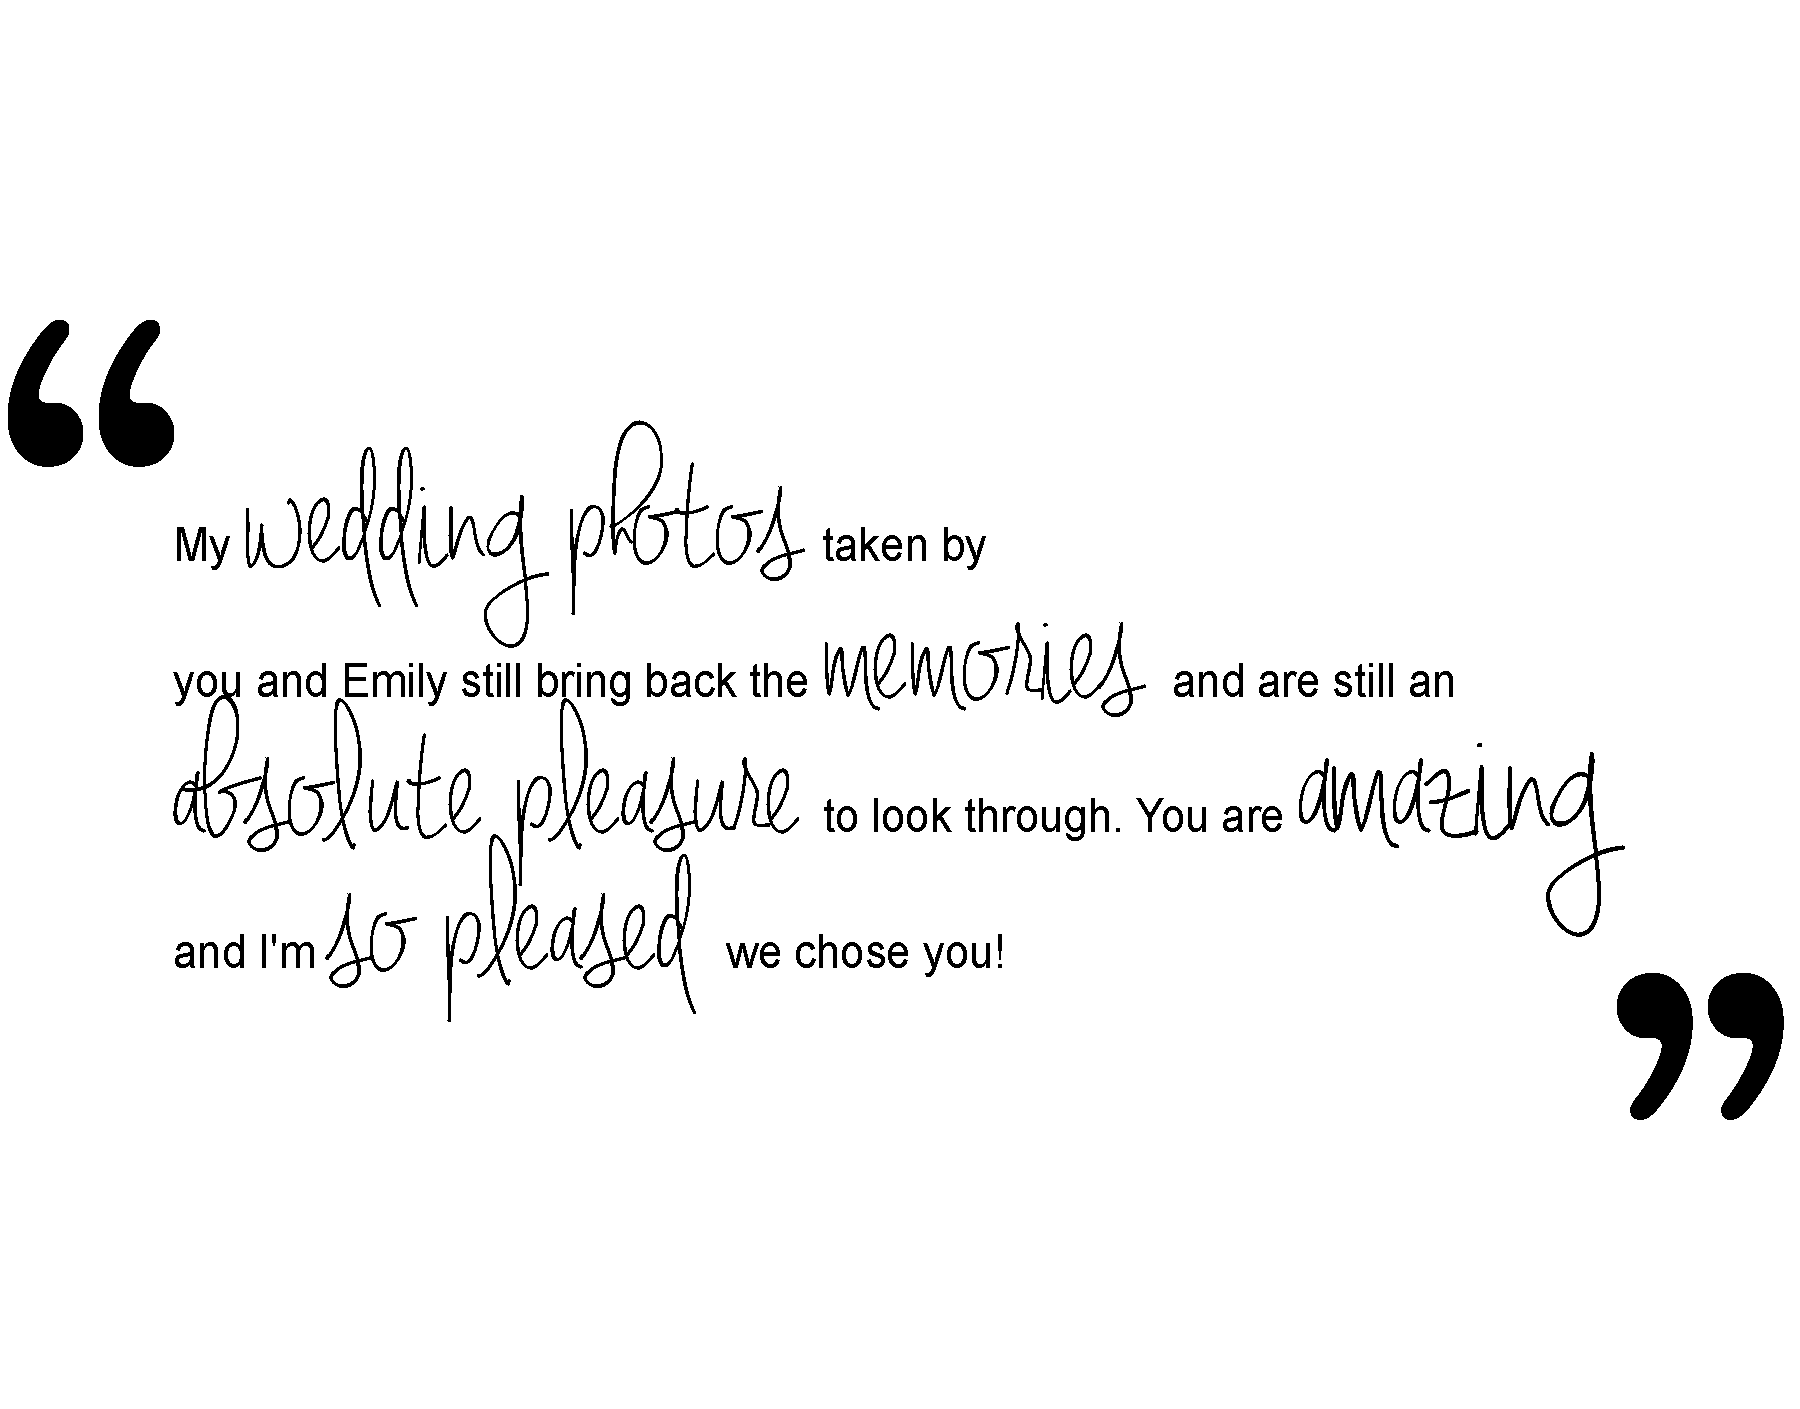 “
My wedding photos taken by
you and Emily still bring back the memories and are still an
absolute pleasure to look through. You are amazing
and I'm so pleased we chose you!
”